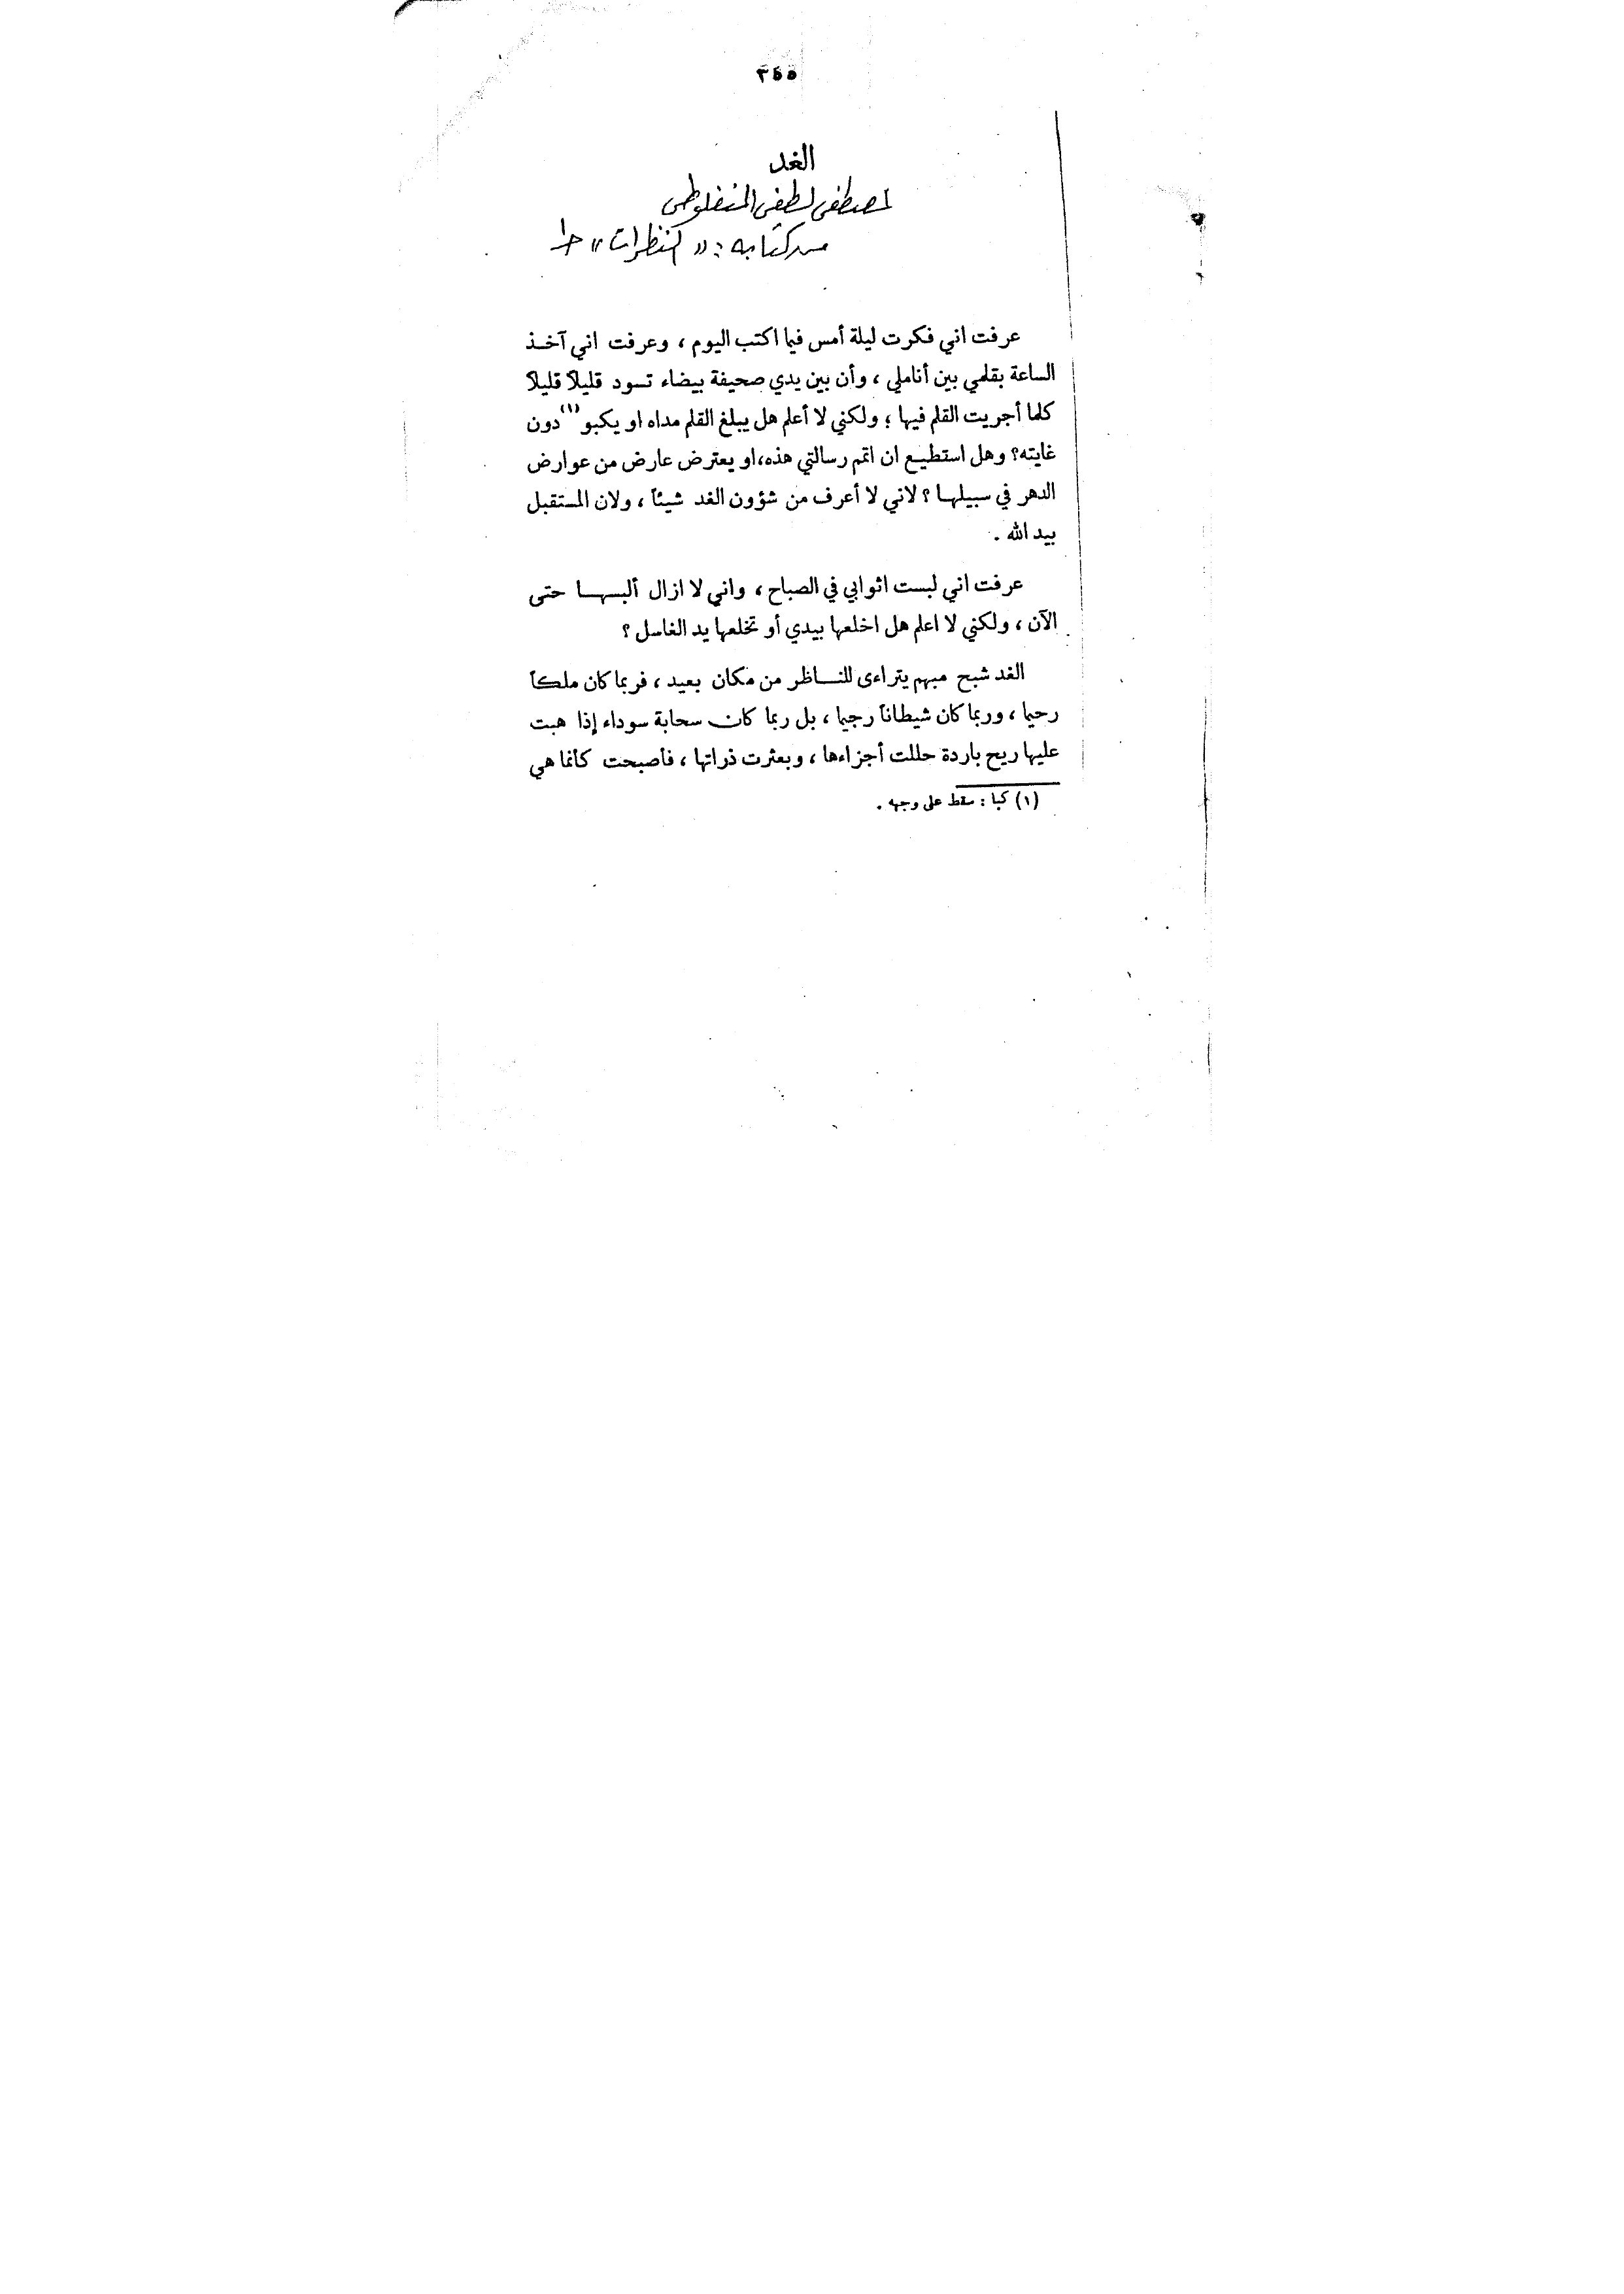 ٣٥٥
الغد
لمصطفى لطفي المنفلوطي
من كتابه : « النظرات » ج١
عرفت اني فكرت ليلة أمس فيما اكتب اليوم ، وعرفت اني آخذ
الساعة بقلمي بين أناملي ، وأن بين يدي صحيفة بيضاء تسود قليلاً قليلاً
كلما أجريت القلم فيها ؛ ولكني لا أعلم هل يبلغ القلم مداه او يكبو (١) دون
غايته؟ وهل استطيع ان اتمم رسالتي هذه،او يعترض عارض من عوارض
الدهر في سبيلها ؟ لاني لا أعرف من شؤون الغد شيئاً ، ولان المستقبل
بيد الله .
عرفت اني لبست اثوابي في الصباح ، واني لا ازال ألبسها حتى
الآن ، ولكني لا اعلم هل اخلعها بيدي أو تخلعها يد الغاسل ؟
الغد شبح مبهم يتراءى للناظر من مكان بعيد ، فربما كان ملكاً
رحيما ، وربما كان شيطاناً رجيما ، بل ربما كان سحابة سوداء إذا هبت
عليها ريح باردة حللت أجزاءها ، وبعثرت ذراتها ، فأصبحت كأنما هي
(١) كبا : سقط على وجهه .